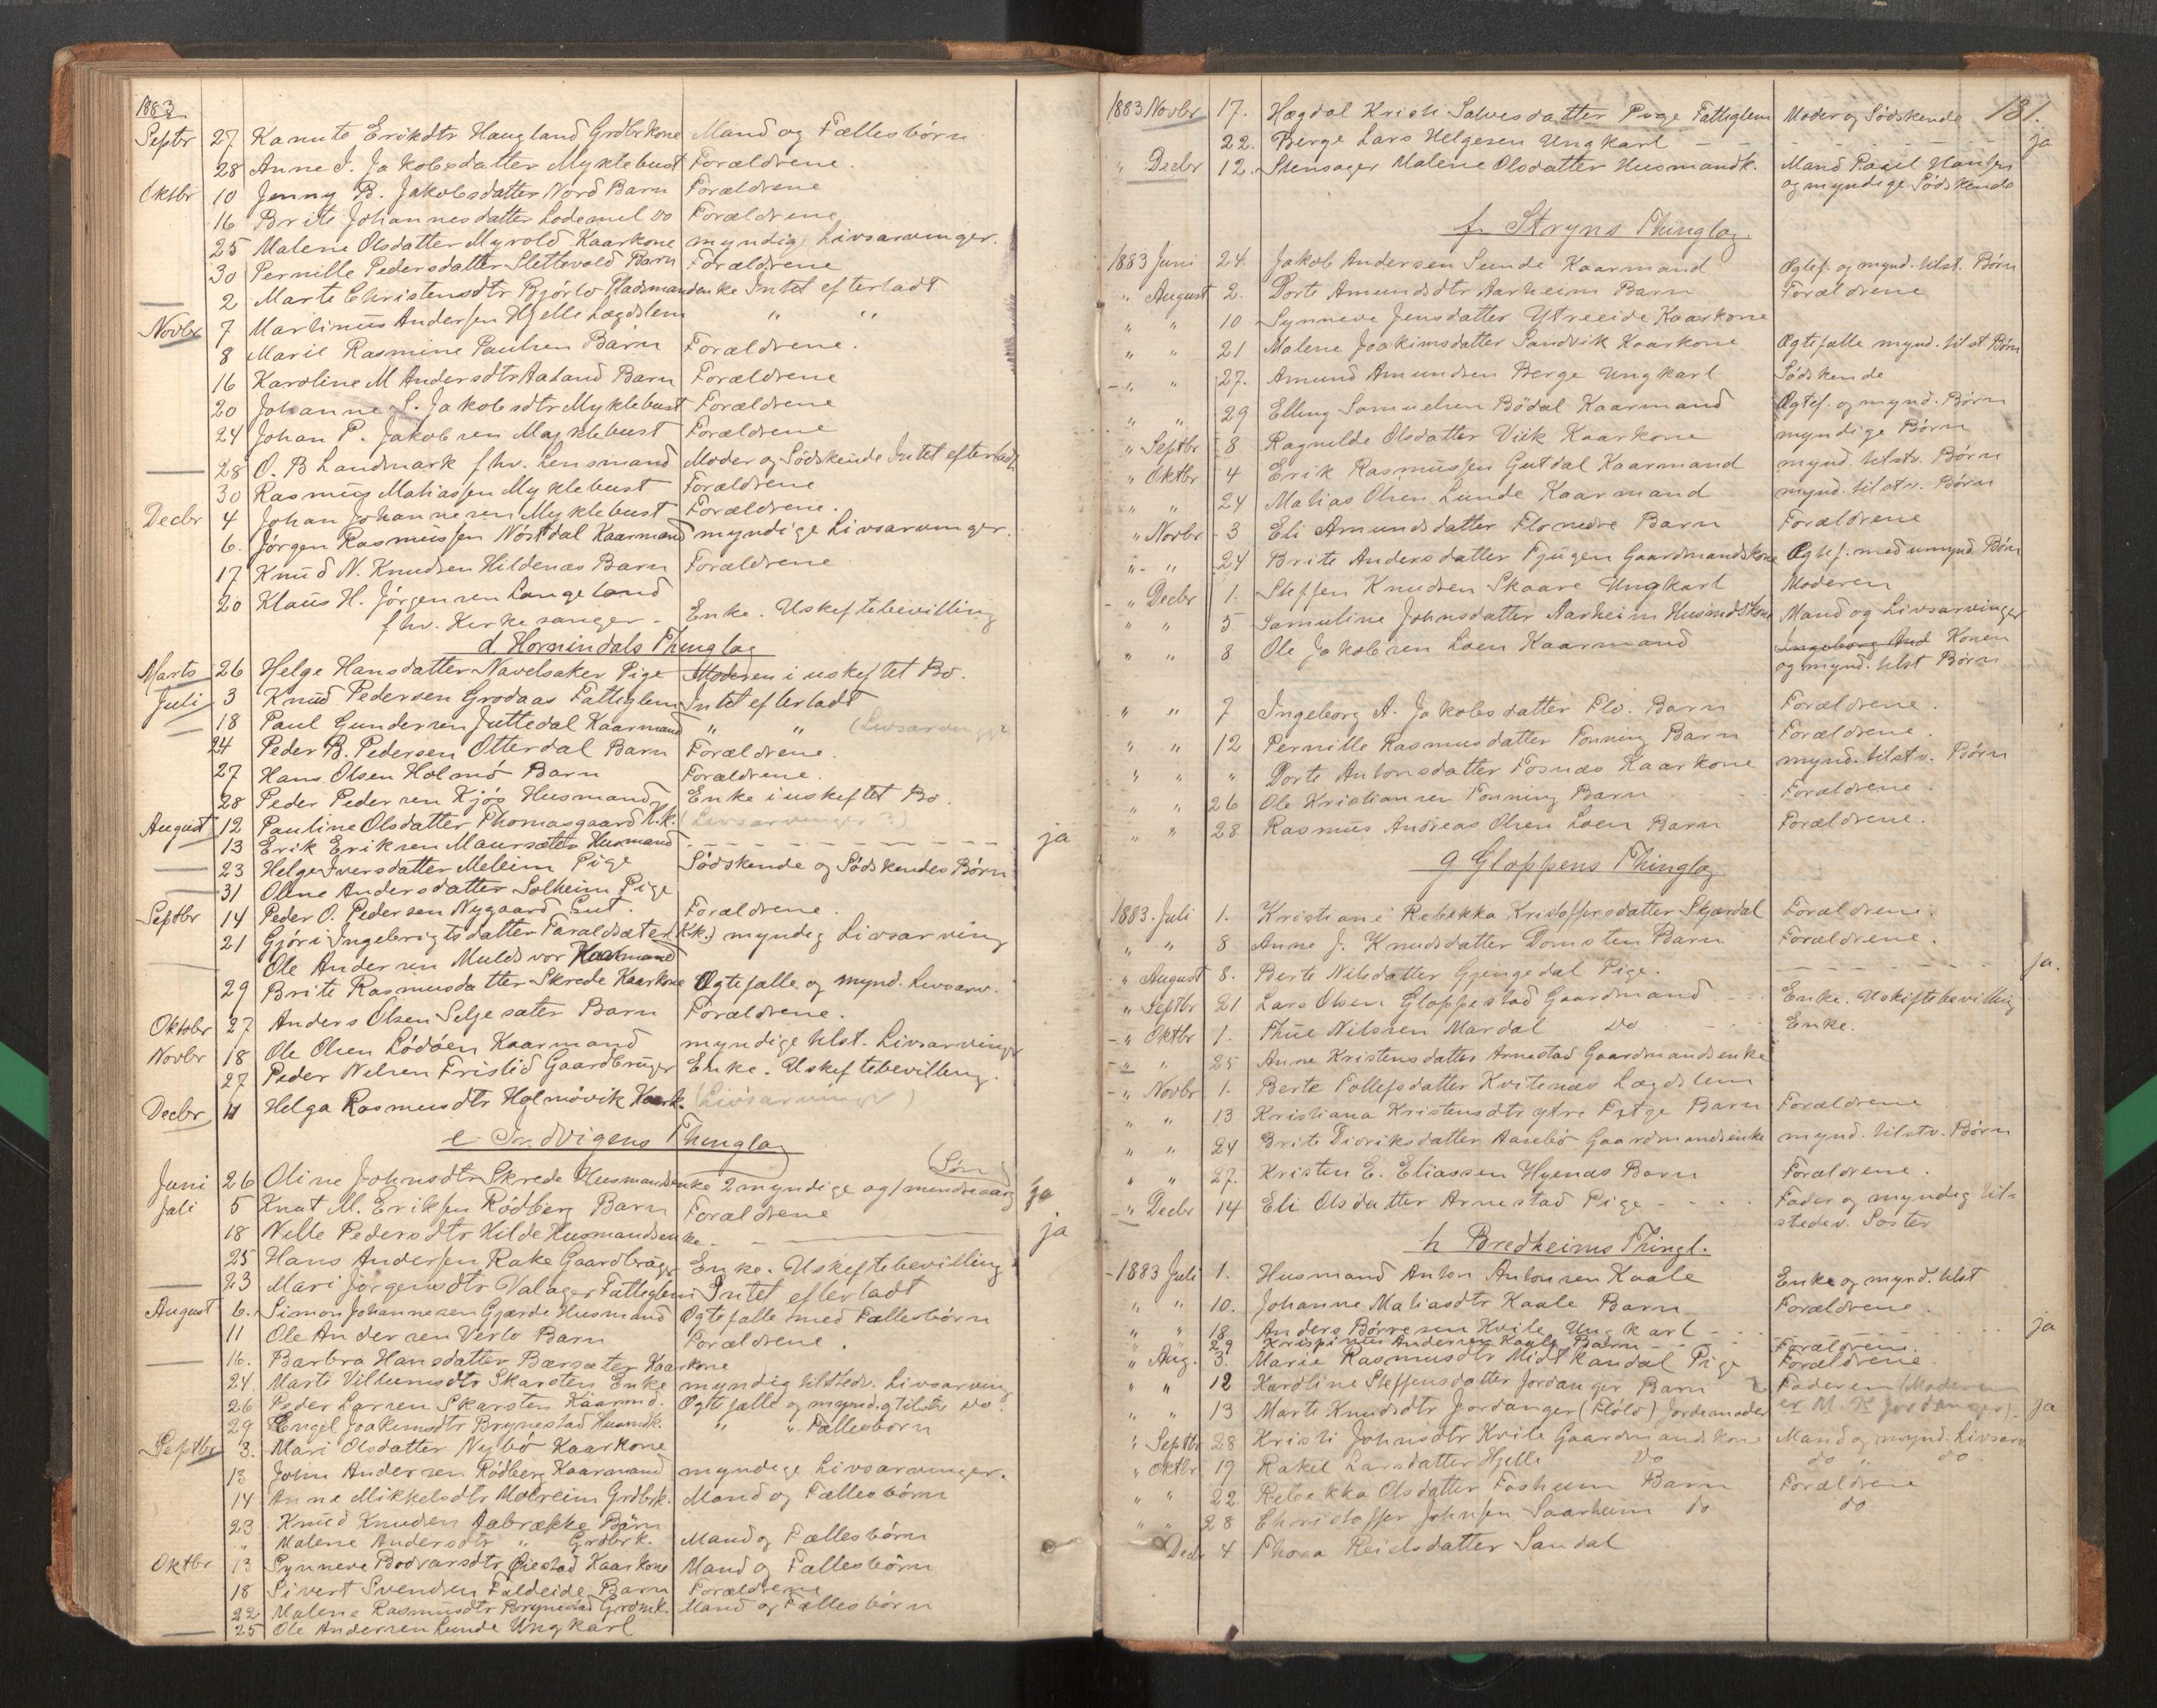 1883
Septbr 27 Kanute Eriksdtr Haugland Grdbrkone Mand og Fællesbörn
28 Anne I. Jakobsdatter Myklebust Forældrene.
Oktbr 10 Jenny B. Jakobsdatter Nord Barn Forældrene
16 Brite Johannesdatter do Forældrene
25 Malene Olsdatter Myrold Kaarkone myndige Livsarvinger.
30 Pernille Pedersdatter Slettevold Barn Forældrene
2 Marte Christensdtr Bjørlo Pladsmandenke Intet efterladt
Novbr 7 Martinus Andersen Hjelle Lægdslem " "
8 Marie Rasmine Paulsen Barn Forældrene.
16 Karoline M Andersdtr Aaland Barn Forældrene
20 Johanne S. Jakobsdtr Myklebust Forældrene
24 Johan P. Jakobsen Myklebust Forældrene
28 O. B Landmark fhv. Lensmand Moder og Södskende Intet efterladt
30 Rasmus Matiassen Myklebust Forældrene
Decbr 4 Johan Johannesen Myklebust Forældrene.
6. Jørgen Rasmussen Nöstdal Kaarmand myndige Livsarvinger.
17 Knud N. Knudsen Hildenæs Barn Forældrene
20 Klaus H. Jørgensen Langeland
fhv. Kirkesanger - Enke. Uskiftebevilling
d Hornindals Thinglag
Marts 26 Helge Hansdatter Navelsaker Pige Moderen i uskiftet Bo.
Juli 3 Knud Pedersen Grodaas Fattiglem Intet efterladt
18 Paul Gundersen Juttedal Kaarmand " " (Livsarvinger
24 Peder B. Pedersen Otterdal Barn Forældrene.
27 Hans Olsen Holmö Barn Forældrene.
28 Peder Pedersen Kjøs Husmand Enke i uskiftet Bo.
August 12 Pauline Olsdatter Thomasgaard K.k. (Livsarvinger?)
13 Erik Eriksen Maursæter Husmand - - - ja
23 Helge Iversdatter Melheim Pige Södskende og Södskendes Börn
31 Oline Andersdatter Solheim Pige
Septbr 14 Peder O. Pedersen Nygaard Gut. Forældrene.
21 Gjöri Ingebrigtsdatter Faraldsæter Kk.) myndig Livsarving
Ole Andersen Muldsvor Kaarmand
29 Brite Rasmusdatter Skrede Kaarkone Ægtefælle og mynd. Livsarv.
Oktobr 27 Anders Olsen Seljesæter Barn Forældrene.
Novbr 18 Ole Olsen Lödöen Kaarmand myndige tilst. Livsarvinger
27 Peder Nilsen Fristid Gaardbruger Enke. Uskiftebevilling.
Decbr 11 Helga Rasmusdtr Holmövik Kaark. (Livsarvinger)
e Indvigens Thinglag
Juni 26 Oline Johnsdtr Skrede Husmandsenke 2 myndige og 1 mindreaarig (Sön) ja
Juli 5 Knut M. Eriksen Rödberg Barn Forældrene
18 Nille Pedersdtr Hilde Husmandsenke - ja
25 Hans Andersen Rake Gaardbruger Enke. Uskiftebevilling
23 Mari Jörgensdtr Valager Fattiglem Intet efterladt
August 6. Simon Johannesen Gjærde Husmand Ægtefælle med Fællesbörn
11 Ole Andersen Verlo Barn Forældrene.
16. Barbra Hansdatter Bærsæter Kaarkone
24. Marte Villumsdtr Skarsten Enke myndig tilstedv. Livsarving
26 Peder Larsen Skarsten Kaarmd. Ægtefælle og myndig tilstv do
29 Engel Joakimsdtr Brynestad Husmdk. " " Fællesbörn
Septbr 3. Mari Olsdatter Nybö Kaarkone
13 John Andersen Rödberg Kaarmand myndige Livsarvinger.
14 Anne Mikkelsdtr Molreim Grdbrk. Mand og Fællesbörn
23 Knud Knudsen Aabrække Barn
" Malene Andersdtr " Grdbrk. Mand og Fællesbörn
Oktbr 13 Synneve Bodvarsdtr Øiestad Kaarkone Mand og Fællesbörn
18 Sivert Svendsen Faldeide Barn Forældrene
22 Malene Rasmusdtr Brynestad Grdmk. Mand og Fællesbörn
25 Ole Andersen Lunde Ungkarl
131.
1883 Novbr 17. Hægdal Kristi Salvesdatter Pige Fattiglem Moder og Södskende
22. Berge Lars Helgesen Ungkarl - - - ja
" Decbr 12. Stensager Malene Olsdatter Husmandk. Mand Paul Hansen
og myndige Södskende
f. Stryns Thinglag.
1883 Juni 24 Jakob Andersen Sunde Kaarmand Ægtef. og mynd. tilst. Börn
" August 2. Dorte Amundsdtr Aarheim Barn Forældrene
" " 10 Synneve Jensdatter Ytreeide Kaarkone
" " 21 Malene Joakimsdatter Sandvik Kaarkone Ægtefælle mynd. tilst Börn
" " 27. Amund Amundsen Berge Ungkarl Södskende
" " 29 Elling Samuelsen Bödal Kaarmand Ægtef. og mynd. Börn
" Septbr 8 Ragnilde Olsdatter Viik Kaarkone myndige Börn
" Oktbr 4 Erik Rasmussen Gutdal Kaarmand mynd. tilstv. Börn
" " 24 Matias Olsen Lunde Kaarmand mynd. tilstv. Börn
" Novbr 3 Eli Amundsdatter Flonedre Barn Forældrene
" " 24 Brite Andersdatter Fjugen Gaardmandskone Ægtef. med umynd Börn
" Decbr 1. Steffen Knudsen Skaare Ungkarl Moderen
" " 5 Samuline Johnsdatter Aarheim Husmdskone Mand og Livsarvinger
" " 8 Ole Jakobsen Loen Kaarmand Ingeborg And Konen
og mynd. tilst Börn
" " 7 Ingeborg A. Jakobsdatter Flo. Barn Forældrene.
" " 12 Pernille Rasmusdatter Tonning Barn Forældrene.
" " " Dorte Antonsdatter Fosnæs Kaarkone mynd. tilstv. Börn
" " 26 Ole Kristiansen Tonning Barn Forældrene.
" " 28 Rasmus Andreas Olsen Loen Barn Forældrene.
g Gloppens Thinglag
1883. Juli 1. Kristiane Rebekka Kristoffersdatter Skjærdal Forældrene.
" " 8 Anne J. Knudsdatter Domsten Barn Forældrene.
" August 8. Berte Nilsdatter Gjengedal Pige. - - - ja.
" Septbr 21 Lars Olsen Gloppestad Gaardmand Enke. Uskiftebevilling
" Oktbr 1. Thue Nilssen Mardal do Enke.
" " 25 Anne Kristensdatter Arnestad Gaardmandsenke
" Novbr 1. Berte Tollefsdatter Kvitenæs Lægdslem
" " 13 Kristiana Kristensdtr ytre Fitje Barn Forældrene
" " 24 Brite Didriksdatter Aasebö Gaardmandsenke mynd. tilstv. Börn
" " 27. Kristen E. Eliassen Hyenæs Barn Forældrene.
" Decbr 14 Eli Olsdatter Arnestad Pige - Fader og myndig til-
stedev. Søster
h Bredheims Thingl.
1883 Juli 1. Husmand Anton Antonsen Kaale Enke og mynd. tilst
" " 10. Johanne Matiasdtr Kaale Barn Forældrene.
" " 18 Anders Börresen Hvile Ungkarl - - - ja
29 Krispinus Andersen Kaale Barn Forældrene.
" Aug. 3. Marie Rasmusdtr Midtkandal Pige Forældrene.
" " 12 Karoline Steffensdatter Jordanger Barn Faderen (Moderen
" " 13 Marte Knudsdtr Jordanger (Flölo) Jordemoder er M. K Jordanger). ja
" Septbr 28 Kristi Johnsdtr Kvile Gaardmandskone Mand og mynd. Livsarv
" Oktbr 19 Rakel Larsdatter Hjelle do do " do
" " 22. Rebekka Olsdatter Fosheim Barn Forældrene
" " 28 Christoffer Johnsen Saarheim do do
Decbr 4 Thora Reidsdatter Sandal